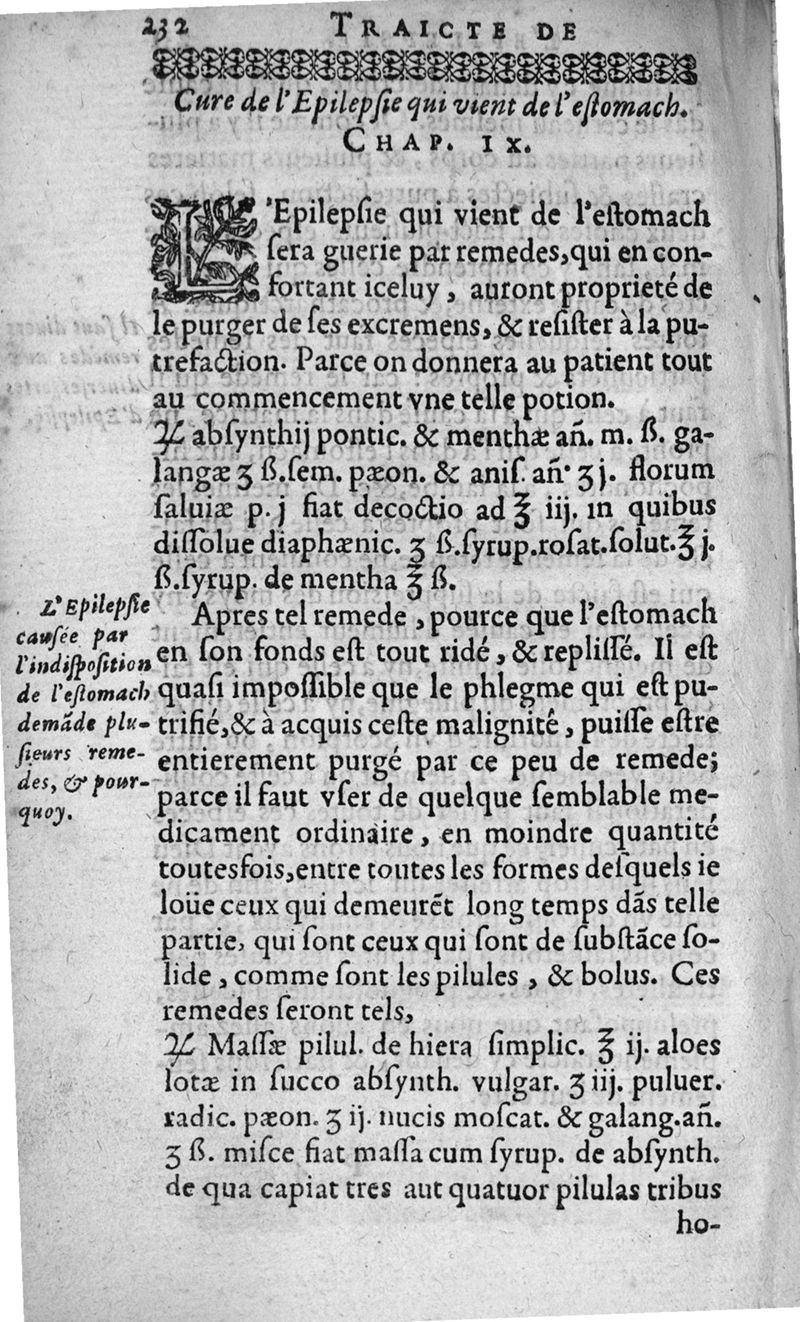 232 TRAICTE DE
Cure de l'Epilepſie qui vient de l'eſtomach.
CHAP. IX.
L'Epilepſie qui vient de l'eſtomach
ſera guerie par remedes, qui en con-
fortant iceluy, auront proprieté de
le purger de ſes excremens, & reſiſter à la pu-
trefaction. Parce on donnera au patient tout
au commencement vne telle potion.
℞ abſynthij pontic. & menthæ añ. m. ß. ga-
langæ ʒ ß. ſem. pæon. & aniſ. añ. ʒ j. florum
ſaluiæ p. j fiat decoctio ad ℥ iij. in quibus
diſſolue diaphænic. ʒ ß. ſyrup. roſat. ſolut. ℥ j.
ß. ſyrup. de mentha ℥ ß.
Apres tel remede, pource que l'eſtomach
en ſon fonds eſt tout ridé, & repliſſé. Il eſt
quaſi impoſſible que le phlegme qui eſt pu-
trifié, & à acquis ceſte malignité, puiſſe eſtre
entierement purgé par ce peu de remede;
parce il faut vſer de quelque ſemblable me-
dicament ordinaire, en moindre quantité
toutesfois, entre toutes les formes deſquels ie
loüe ceux qui demeurẽt long temps dãs telle
partie, qui ſont ceux qui ſont de ſubſtãce ſo-
lide, comme ſont les pilules, & bolus. Ces
remedes ſeront tels,
℞ Maſſæ pilul. de hiera ſimplic. ℥ ij. aloes
lotæ in ſucco abſynth. vulgar. ʒ iij. puluer.
radic. pæon. ʒ ij. nucis moſcat. & galang. añ.
ʒ ß. miſce fiat maſſa cum ſyrup. de abſynth.
de qua capiat tres aut quatuor pilulas tribus
ho-
L'Epilepſie
cauſée par
l'indiſpoſition
de l'eſtomach
demãde plu-
ſieurs reme-
des, & pour-
quoy.